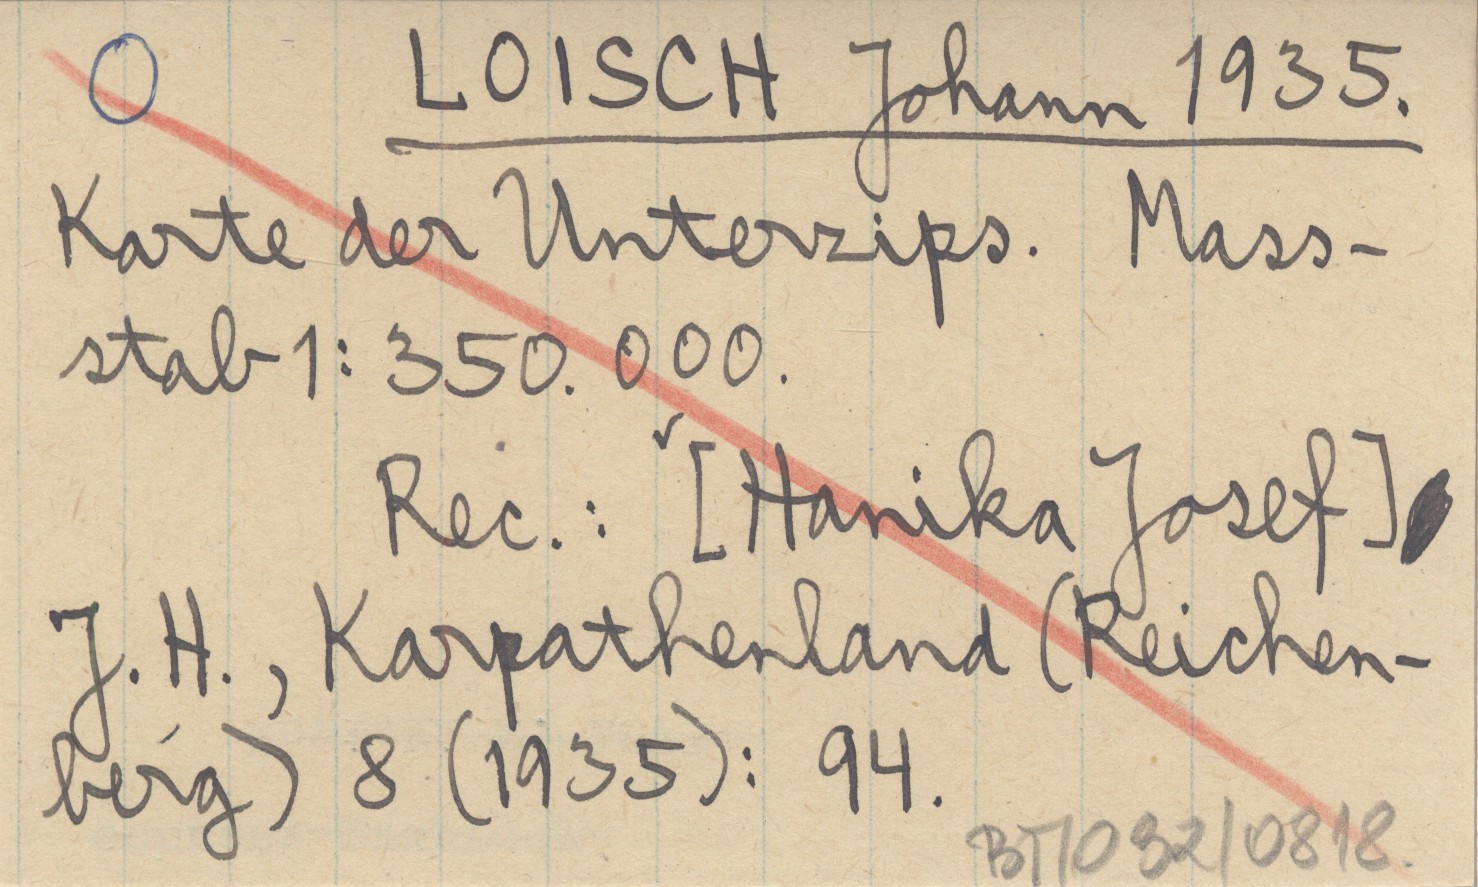 O LOISCH Johann 1935.
Karte der Unterzips. Mass-
stab 1: 350.000.
Rec.: [Hanika Josef]
J.H., Karpathenland (Reichen-
berg) 8 (1935): 94.
BT/032/0818.